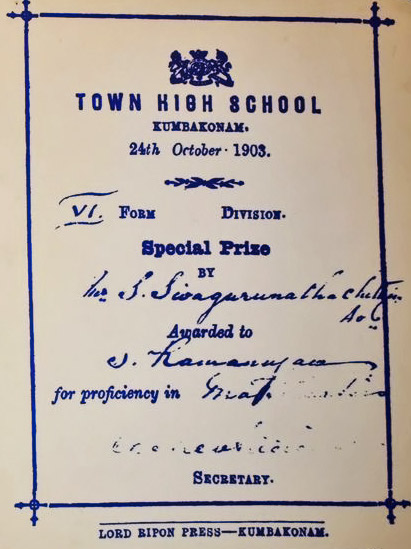 TOWN HIGH SCHOOL
KUMBAKONAM.
24th October · 1903.
VI. FORM DIVISION.
Special Prize
BY
Mr S. Sivagurunatha Chettiar
Awarded to
S. Ramanujan
for proficiency in Mathematics
SECRETARY.
LORD RIPON PRESS—KUMBAKONAM.